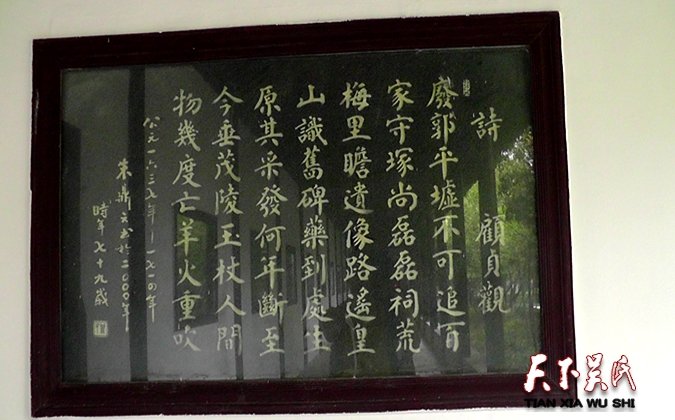 詩　顧貞觀
廢郭平墟不可追百
家守塚尚磊磊祠荒
梅里瞻遺像路遙皇
山識舊碑藥到處生
原其采發何年斷至
今垂茂陵玉杖人間
物幾度亡羊火重吹
公元一六三七年－一七一四年
朱鼎文書於二〇〇〇年
時年七十九歲
天下吴氏
TIAN XIA WU SHI